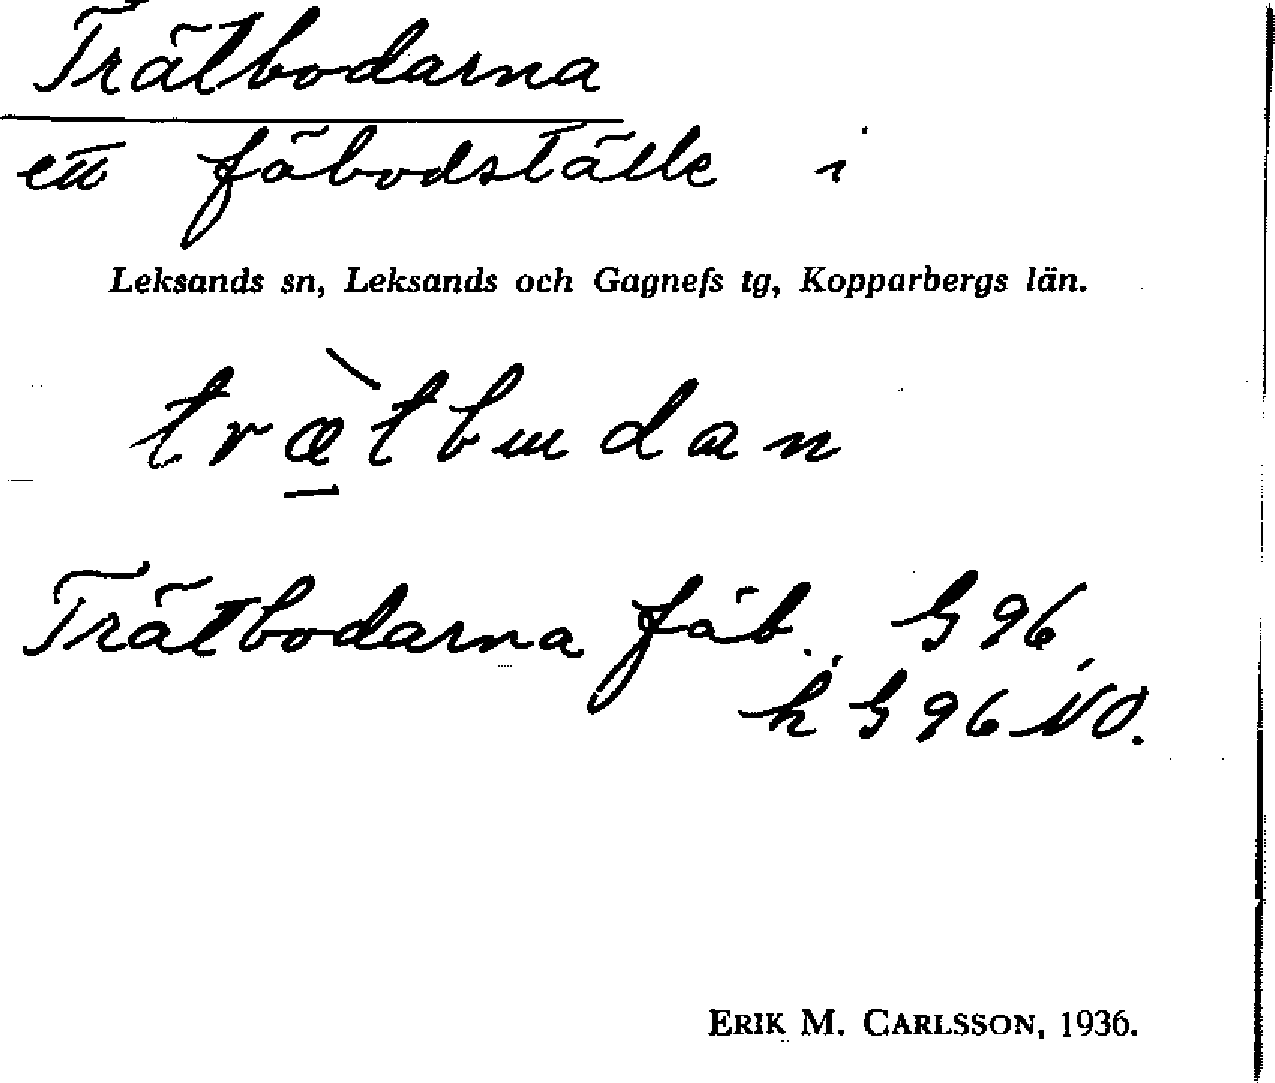 Trätbodarna
ett fäbodställe i
Leksands sn, Leksands och Gagnefs tg, Kopparbergs län.
træ̀tbudan
Trätbodarna fäb. G 96,
k G 96 NO.
ERIK M. CARLSSON, 1936.